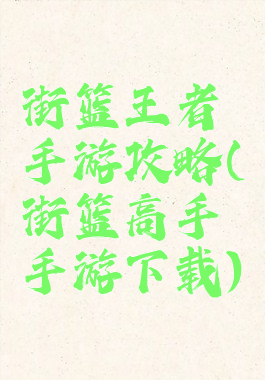 街篮王者
手游攻略(
街篮高手
手游下载)